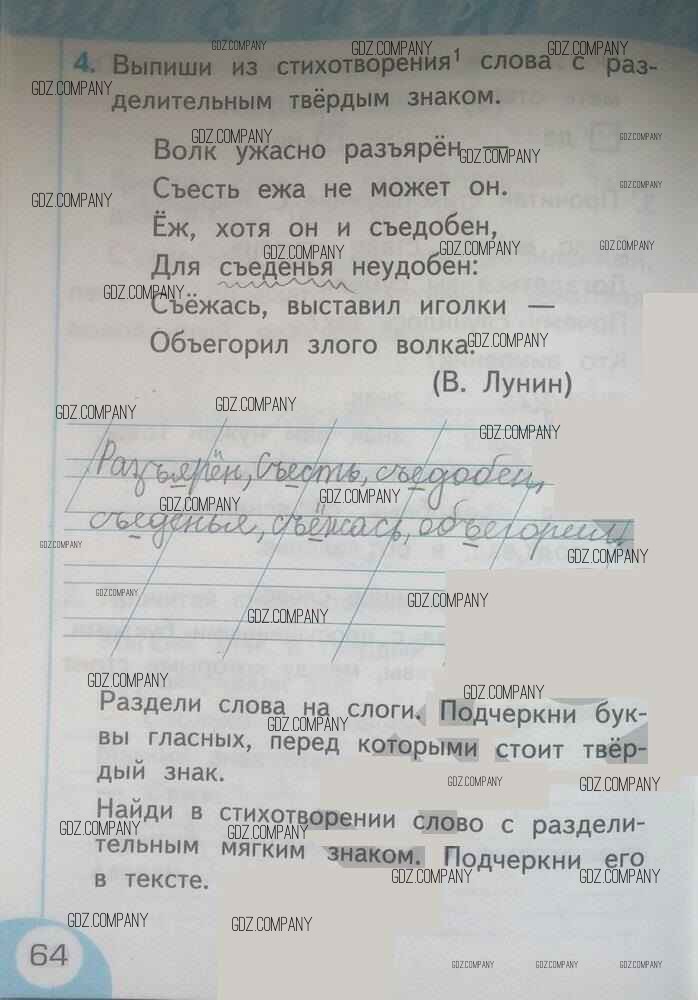 4. Выпиши из стихотворения¹ слова с раз-
делительным твёрдым знаком.
Волк ужасно разъярён —
Съесть ежа не может он.
Ёж, хотя он и съедобен,
Для съеденья неудобен:
Съёжась, выставил иголки —
Объегорил злого волка.
(В. Лунин)
Разъярён, съесть, съедобен,
съеденья, съёжась, объегорил.
Раздели слова на слоги. Подчеркни бук-
вы гласных, перед которыми стоит твёр-
дый знак.
Найди в стихотворении слово с раздели-
тельным мягким знаком. Подчеркни его
в тексте.
64
GDZ.COMPANY